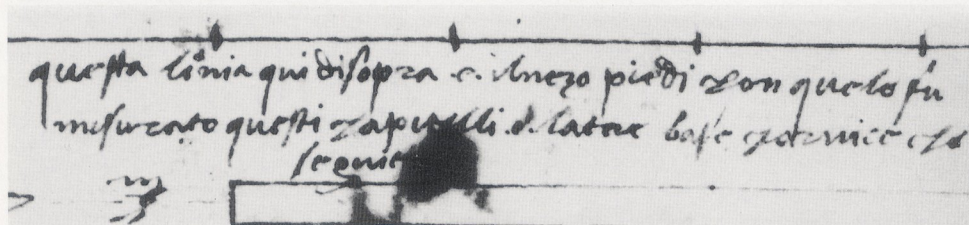 questa linia qui disopra e. ilmezo piedi con quelo fu
misurato questi capitelli e latere base cornice che
seguie